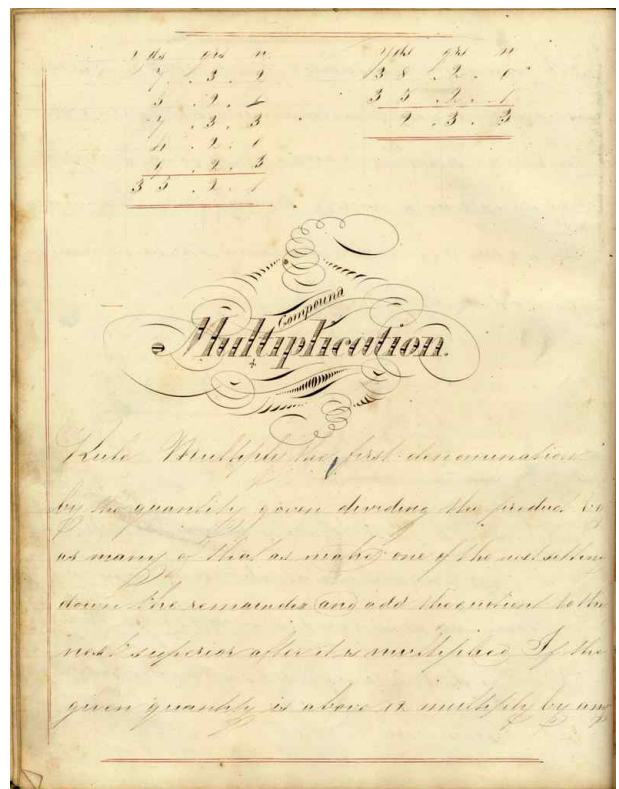 yds qrs n
7 . 3 . 2
5 . 2 . 1
7 . 3 . 3
. 2 . 1
. 2 . 3
35 . 2 . 1
yds qrs n
38 . 2 . 0
35 . 2 . 1
2 . 3 . 3
Compound
Multiplication.
Rule Multiply the first denomination
by the quantity given dividing the product by
as many of that as make one of the next setting
down the remainder and add the quotient to the
next superior after it is multiplied If the
given quantity is above 12 multiply by any